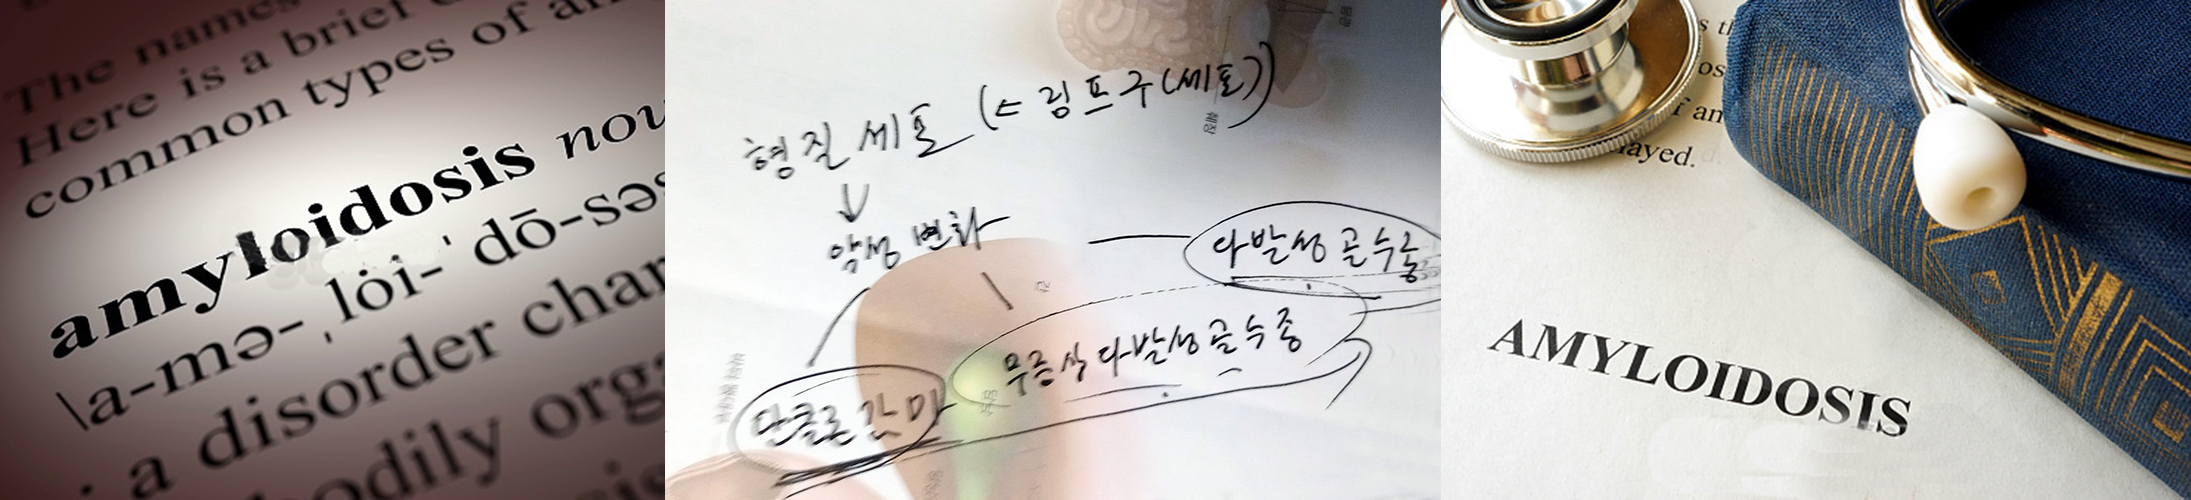 The names
Here is a brief
common types of an
amyloidosis nou
\a-mə-ˌlȯi-ˈdō-səs
a disorder char
bodily orga
형질세포 (← 림프구(세포))
↓
악성 변화
다발성 골수종
무증상 다발성골수종
단클론감마
s th
os
f am
layed.
AMYLOIDOSIS